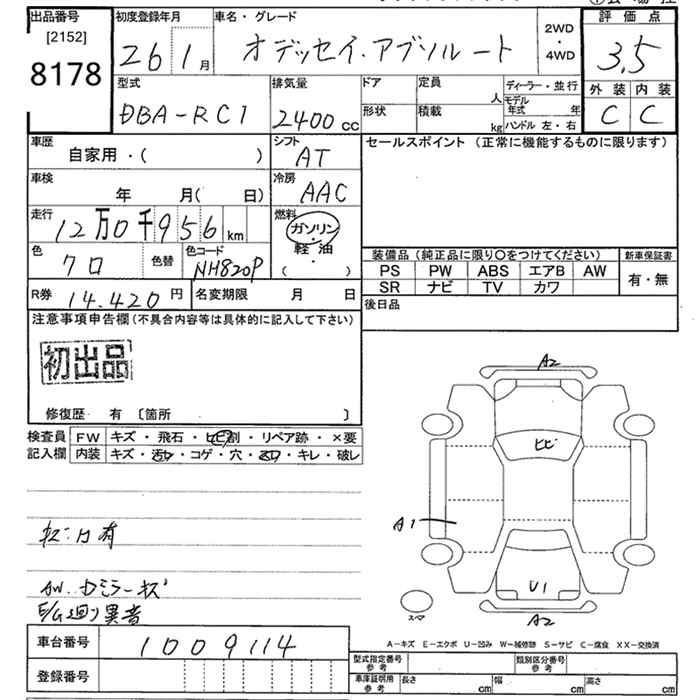 出品番号 初度登録年月 車名・グレード 評価点
[2152]
8178
26 1月 オデッセイ.アブソルート 2WD・4WD 3.5
型式 排気量 ドア 定員 人 ディーラー・並行 外装 内装
DBA-RC1 2400cc 形状 積載 kg モデル年式 年 ハンドル 左・右 C C
車歴 シフト セールスポイント (正常に機能するものに限ります)
自家用・( ) AT
車検 年 月( 日) 冷房 AAC
走行 12万0千956km 燃料 ガソリン・軽油 ( )
色 クロ 色替 色コード NH820P
装備品 (純正品に限り〇をつけてください) 新車保証書
PS PW ABS エアB AW 有・無
SR ナビ TV カワ
R券 14.420円 名変期限 月 日 後日品
注意事項申告欄(不具合内容等は具体的に記入して下さい)
初出品
修復歴 有 〔箇所 〕
検査員記入欄 FW キズ・飛石・ヒビ割・リペア跡・×要
内装 キズ・汚レ・コゲ・穴・キレ・破レ
A2
ヒビ
A1
U1
A2
スペア
有
AW.ドミラーキズ
E/G廻り異音
A-キズ E-エクボ U-凹み W-補修跡 S-サビ C-腐食 XX-交換済
車台番号 1009114
登録番号
型式指定番号 参考 類別区分番号 参考
車庫証明用 参考 長さ cm 幅 cm 高さ cm